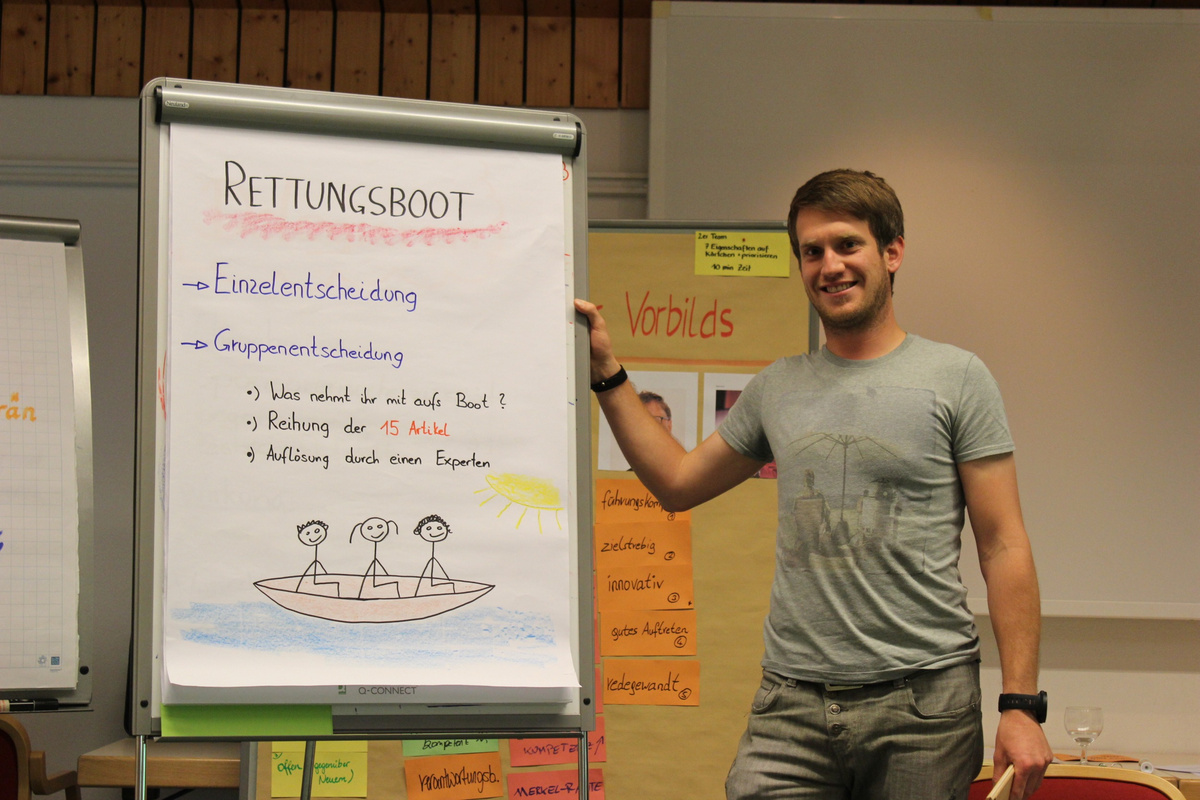 RETTUNGSBOOT
Einzelentscheidung
Gruppenentscheidung
•) Was nehmt ihr mit aufs Boot ?
•) Reihung der 15 Artikel
•) Auflösung durch einen Experten
Q-CONNECT
2er Team
7 Eigenschaften auf
Kärtchen + priorisieren
10 min Zeit
Vorbilds
zielstrebig 2
innovativ 3
gutes Auftreten 4
redegewandt 5
offen gegenüber
Neuem)
kompetent
verantwortungsb.